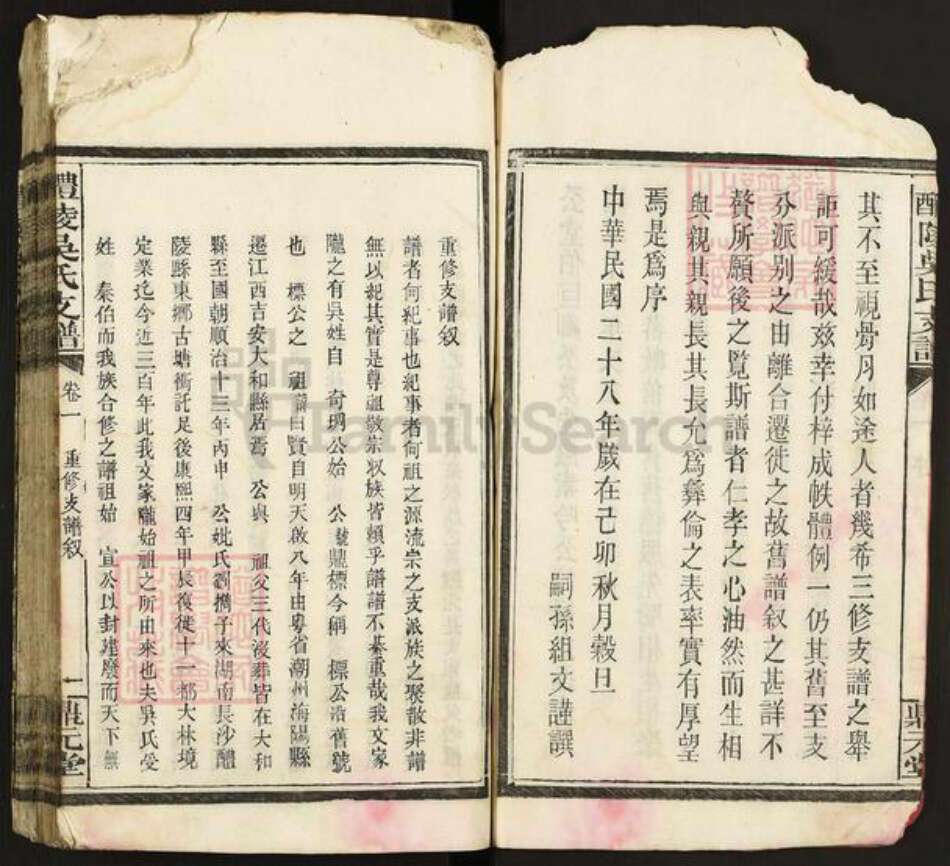 其不至視骨月如途人者幾希三修支譜之舉
詎可緩哉茲幸付梓成帙體例一仍其舊至支
分派別之由離合遷徙之故舊譜叙之甚詳不
贅所願後之覧斯譜者仁孝之心油然而生相
與親其親長其長允爲彞倫之表率實有厚望
焉是爲序
中華民國二十八年歲在己卯秋月穀旦
嗣孫組文謹撰
重修支譜叙
譜者何紀事也紀事者何祖之源流宗之支派族之聚散非譜
無以紀其實是尊祖敬宗収族皆賴乎譜譜不綦重哉我文家
隴之有吳姓自 琦瑪公始 公號鼎標今稱 標公沿舊號
也 標公之 祖諱曰賢自明天啟八年由粵省潮州海陽縣
遷江西吉安大和縣居焉 公與 祖父三代沒葬皆在大和
縣至國朝順治十三年丙申 公妣氏劉擕子來湖南長沙醴
陵縣東鄉古塘衝託足後康熙四年甲辰復徙十一都大林境
定業迄今近三百年此我文家隴始祖之所由來也夫吳氏受
姓 泰伯而我族合修之譜祖始 宣公以封建廢而天下無
醴陵吳氏支譜 卷一 重修支譜叙 二 鼎元堂
醴陵吳氏支譜
鼎元堂
FamilySearch